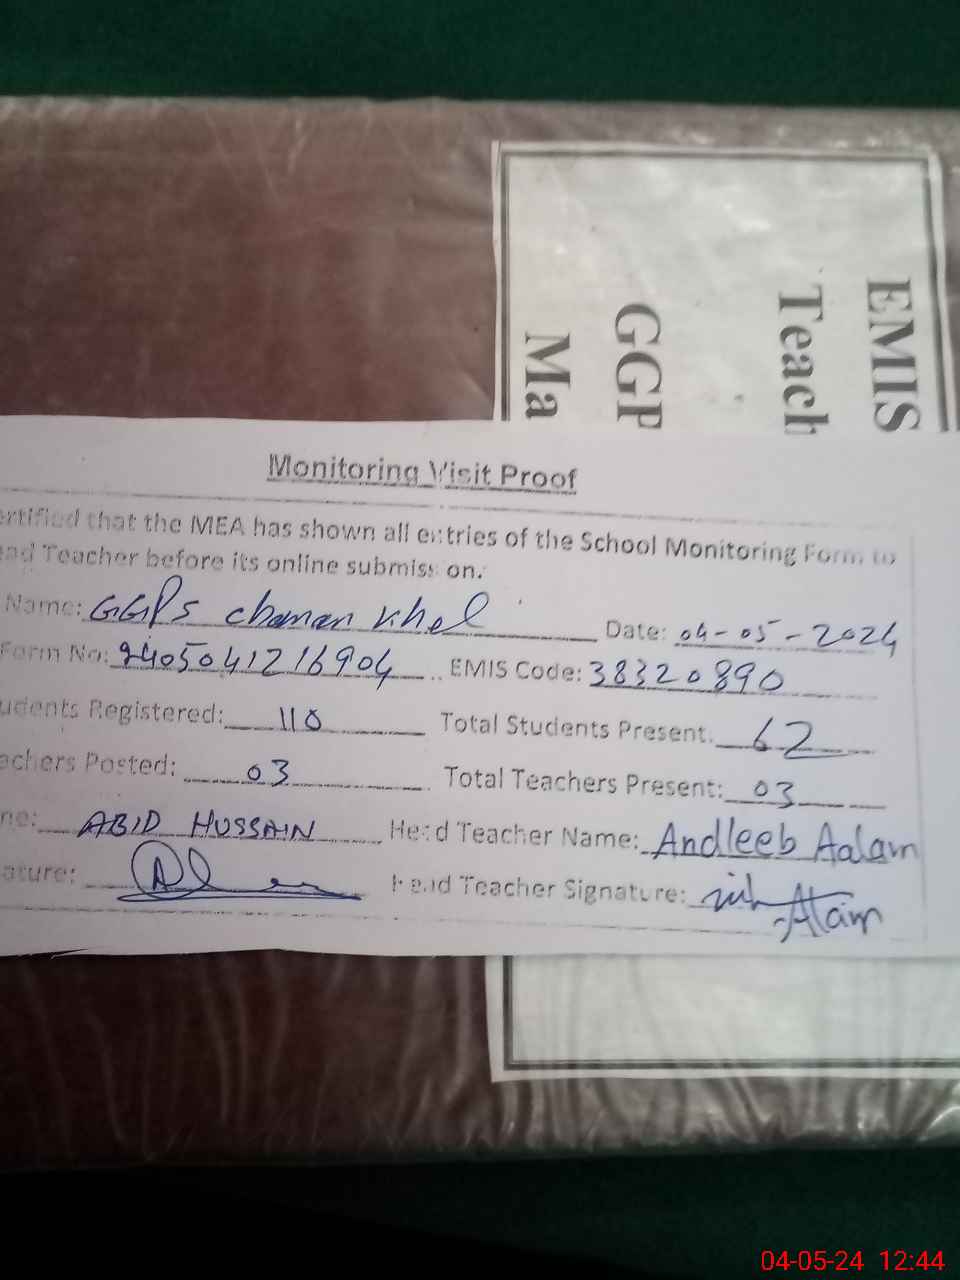 EMIS
Teach
GGP
Ma
Monitoring Visit Proof
ertified that the MEA has shown all entries of the School Monitoring Form to
ead Teacher before its online submission.
Name: GGPS chaman khel Date: 04-05-2024
Form No: 2405041216904 EMIS Code: 38320890
udents Registered: 110 Total Students Present: 62
achers Posted: 03 Total Teachers Present: 03
me: ABID HUSSAIN Head Teacher Name: Andleeb Aalam
ature: Head Teacher Signature:
04-05-24 12:44